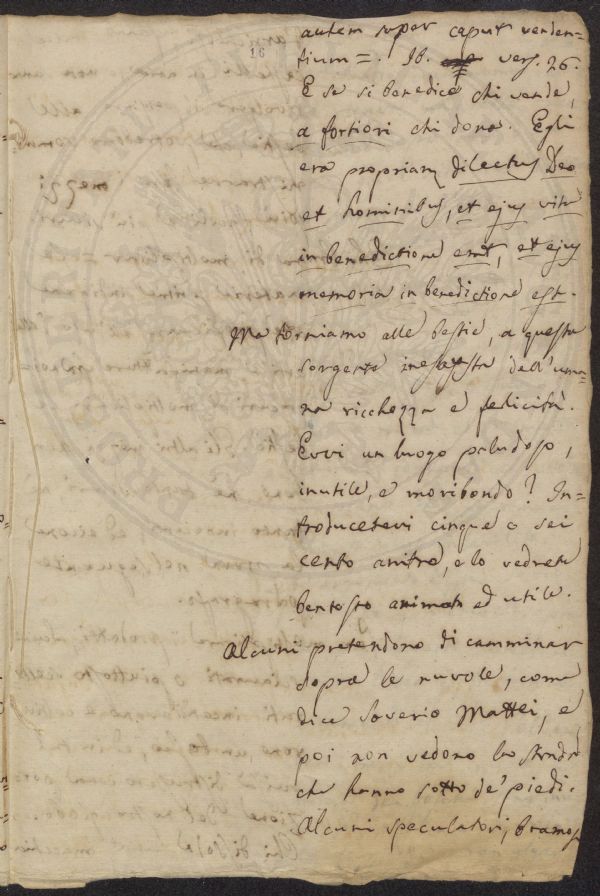 autem super caput venden=
tium=. Ib. vers. 26.
E se si benedice chi vende,
a fortiori chi dona. Egli
era propriam dilectus Deo
et hominibus, et ejus vita
in benedictione erit, et ejus
memoria in benedictione est.
Ma torniamo alle bestie, a questa
sorgente inesausta dell'uma=
na ricchezza e felicità.
Evvi un luogo paludoso,
inutile, e moribondo? In=
troducetevi cinque o sei
cento anitre, e lo vedrete
bentosto animato ed utile.
Alcuni pretendono di camminar
sopra le nuvole, come
dice Saverio Mattei, e
poi non vedono la strada
che hanno sotto de' piedi.
Alcuni speculatori, bramosi
16